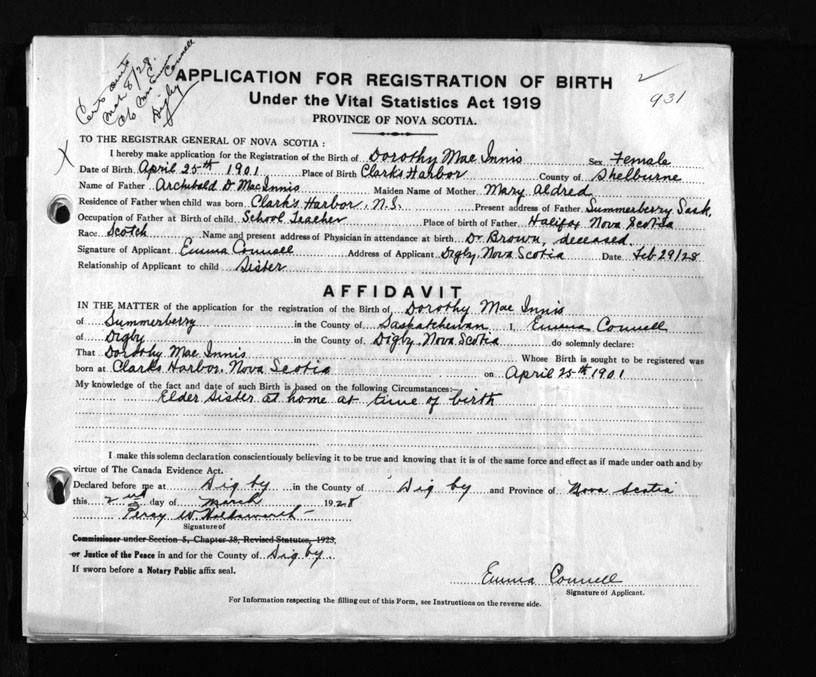 Certs sent
Mch 8/28.
to Mrs E Connell
Digby
APPLICATION FOR REGISTRATION OF BIRTH
931
Under the Vital Statistics Act 1919
PROVINCE OF NOVA SCOTIA.
X
TO THE REGISTRAR GENERAL OF NOVA SCOTIA :
I hereby make application for the Registration of the Birth of Dorothy Mac Innis Sex Female
Date of Birth April 25th 1901 Place of Birth Clarks Harbor County of Shelburne
Name of Father Archibald D. MacInnis Maiden Name of Mother Mary Aldred
Residence of Father when child was born Clark's Harbor, N.S. Present address of Father Summerberry Sask.
Occupation of Father at Birth of child School Teacher Place of birth of Father Halifax Nova Scotia
Race Scotch Name and present address of Physician in attendance at birth Dr Brown, deceased.
Signature of Applicant Emma Connell Address of Applicant Digby, Nova Scotia Date Feb 29/28
Relationship of Applicant to child Sister
AFFIDAVIT
IN THE MATTER of the application for the registration of the Birth of Dorothy Mac Innis
of Summerberry in the County of Saskatchewan I, Emma Connell
of Digby in the County of Digby, Nova Scotia do solemnly declare:
That Dorothy Mac Innis Whose Birth is sought to be registered was
born at Clarks Harbor, Nova Scotia on April 25th 1901
My knowledge of the fact and date of such Birth is based on the following Circumstances:—
Elder Sister at home at time of birth
I make this solemn declaration conscientiously believing it to be true and knowing that it is of the same force and effect as if made under oath and by
virtue of The Canada Evidence Act.
Declared before me at Digby in the County of Digby and Province of Nova Scotia
this 2nd day of March 1928
Percy W. Holdsworth
Signature of
Commissioner under Section 5, Chapter 38, Revised Statutes, 1923,
or Justice of the Peace in and for the County of Digby.
If sworn before a Notary Public affix seal.
Emma Connell
Signature of Applicant.
For Information respecting the filling out of this Form, see Instructions on the reverse side.